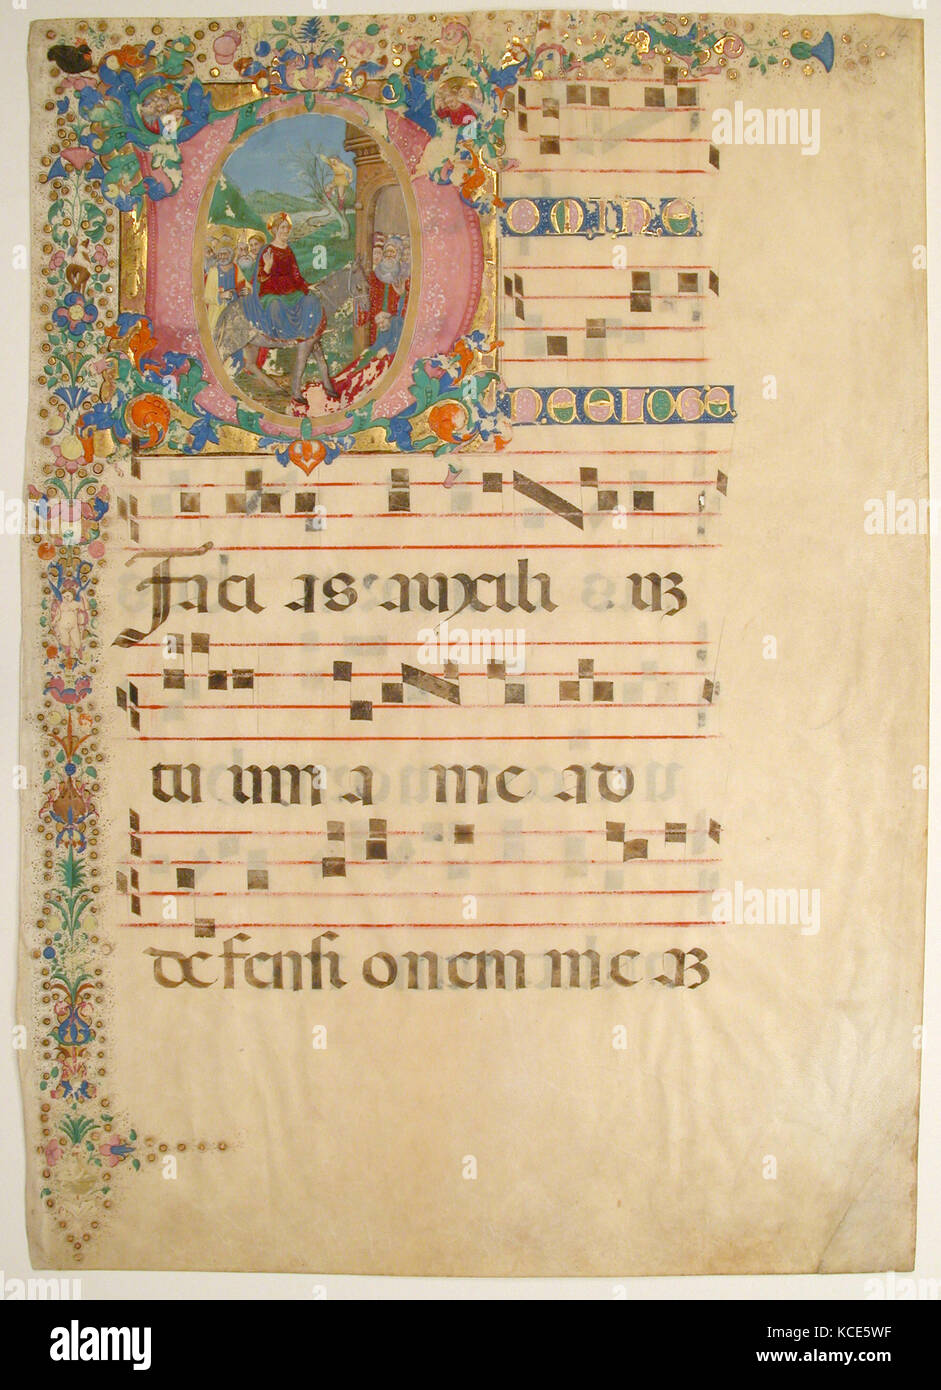 14
DOMINE
NE ELOGE
Faci as auxili uȝ
tu um a me ad
defensi onem me aȝ
alamy
Image ID: KCE5WF
www.alamy.com